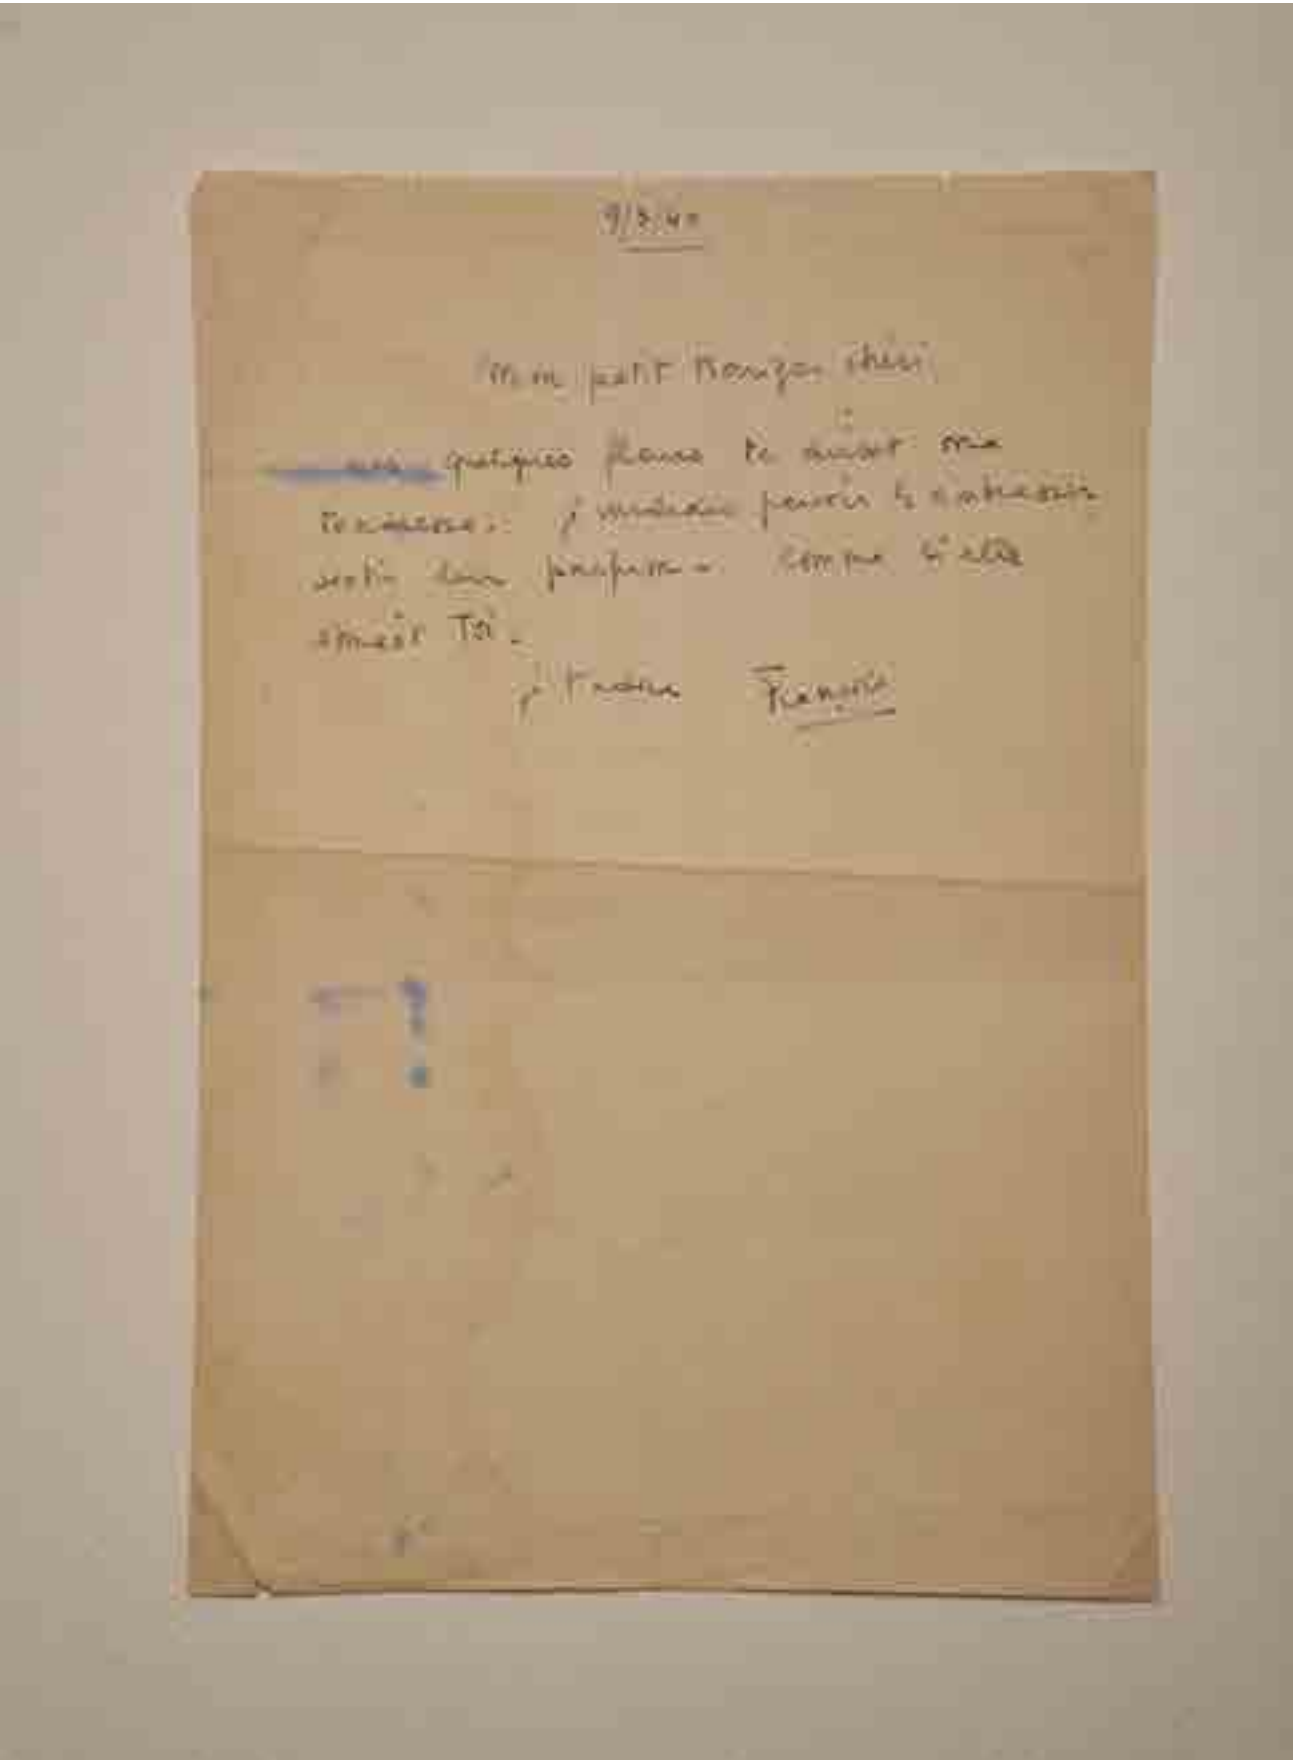 9/3/40
Mon petit chéri
quelques fleurs te diront ma
tendresse. je voudrais pouvoir les embrasser,
sentir leur parfum comme si elles
étaient Toi.
je t'adore François